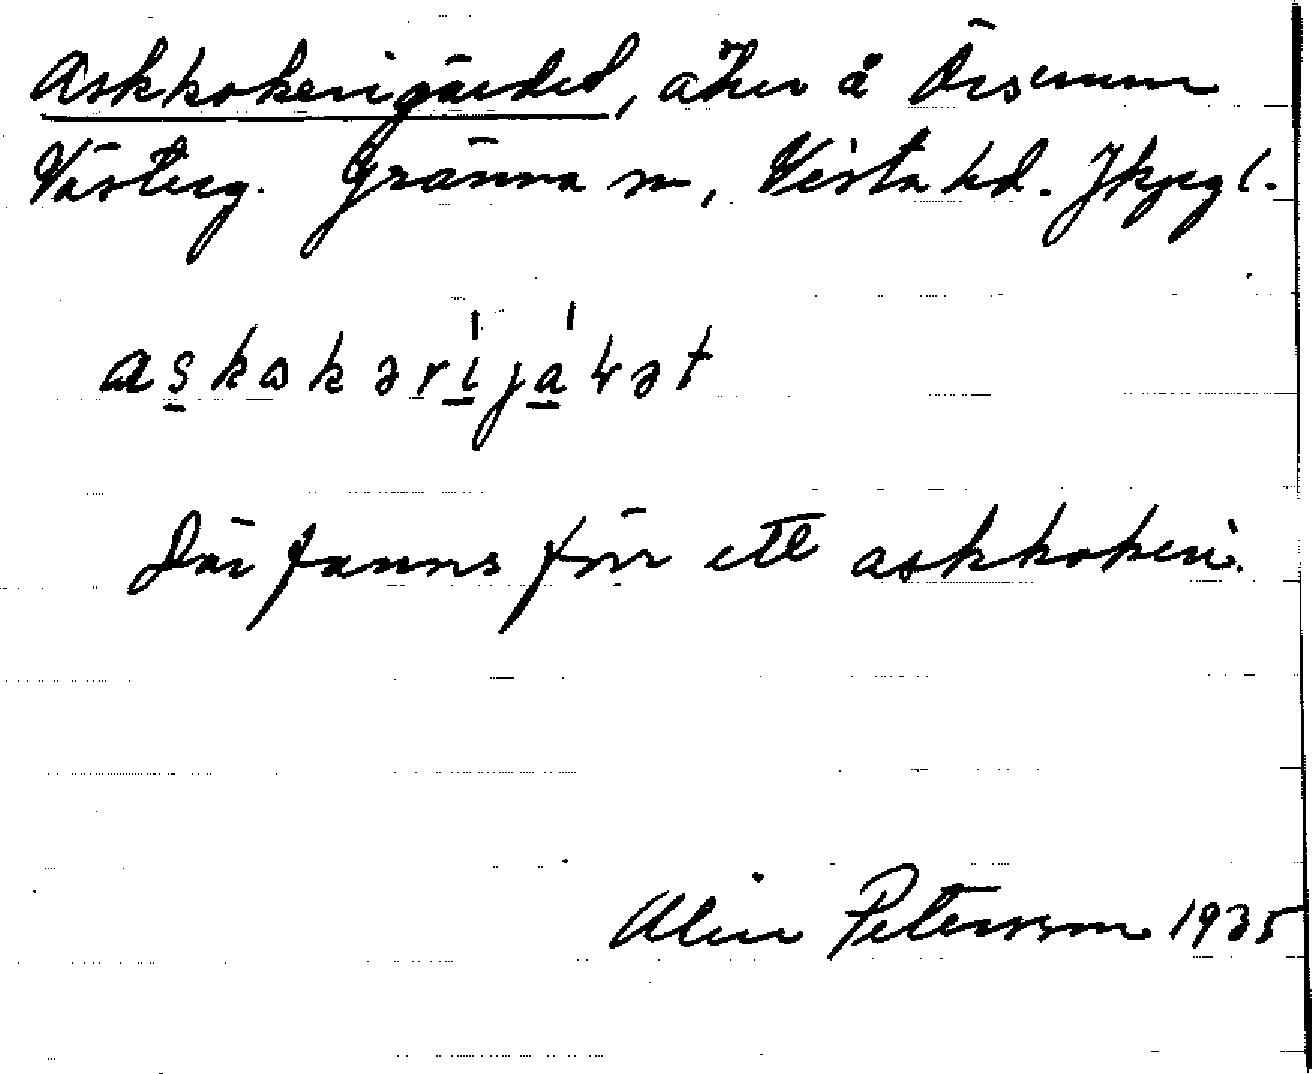 Askkokerigärdet, åker å Örserum
Västerg. Gränna sn, Vista hd. Jkpg l.
askokərijaʹɫət
Där fanns förr ett askkokeri.
Alice Petersson 1935